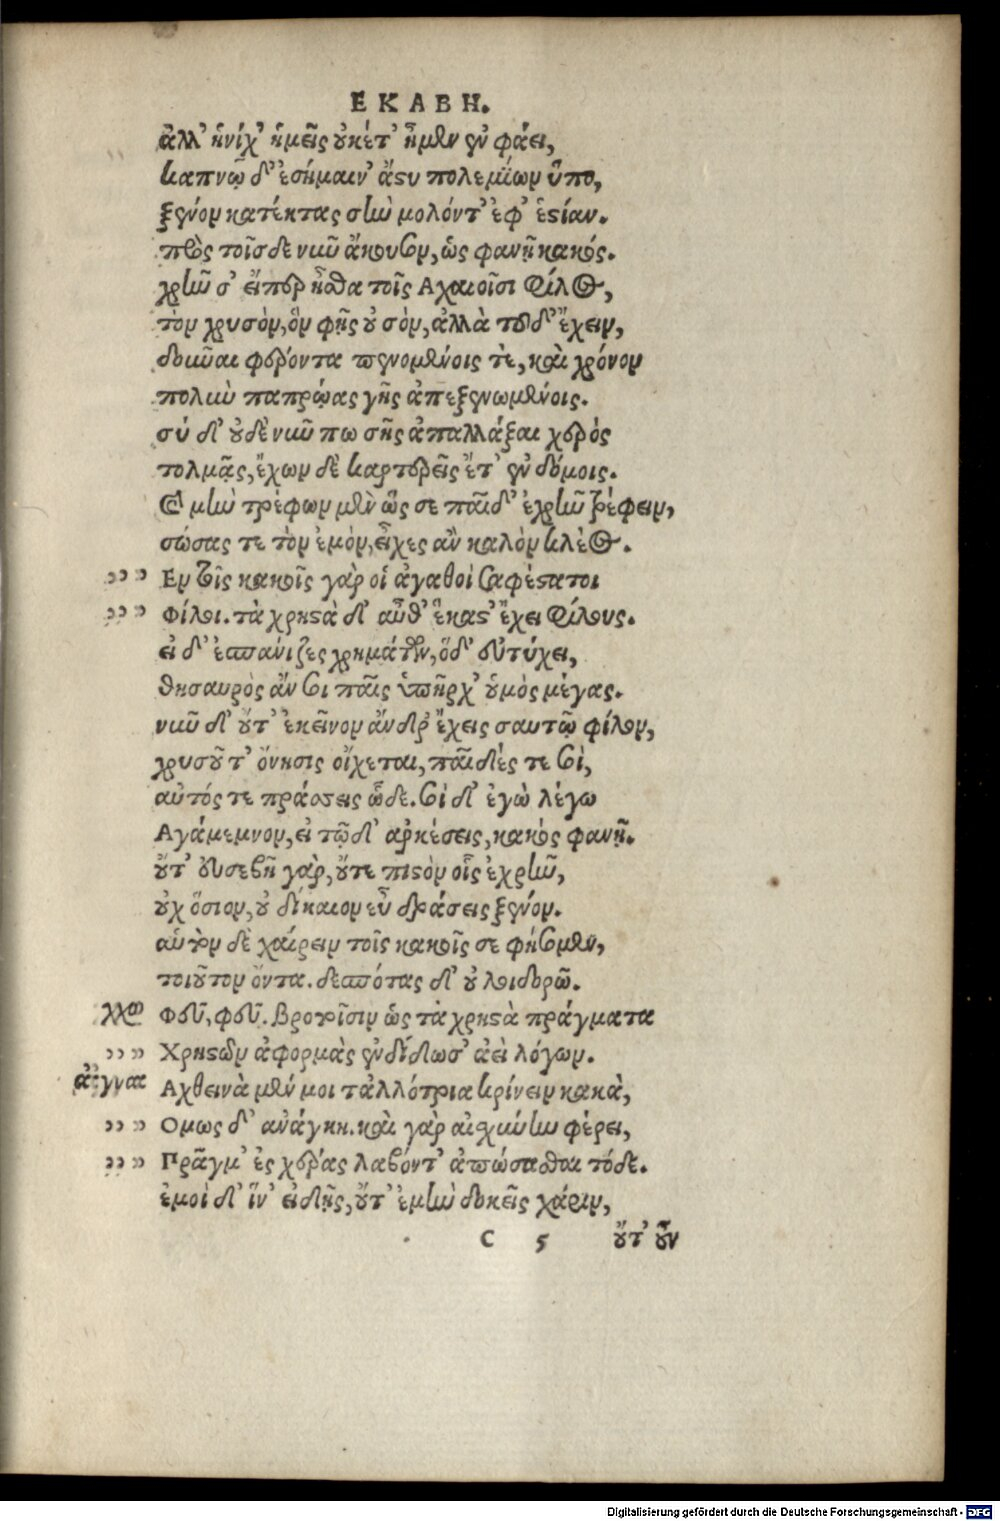 ΕΚΑΒΗ.
ἀλλ' ἡνίχ' ἡμεῖς οὐκέτ' ἦμεν ἐν φάει,
καπνῷ δ' ἐσήμαιν' ἄστυ πολεμίων ὕπο,
ξένον κατέκτας σὴν μολόντ' ἐφ' ἑστίαν.
πρὸς τοῖσδε νῦν ἄκουσον, ὡς φανῇ κακός.
χρῆν σ' εἴπερ ἦσθα τοῖς Ἀχαιοῖσι φίλος,
τὸν χρυσὸν, ὃν φῂς οὐ σὸν, ἀλλὰ τοῦδ' ἔχειν,
δοῦναι φέροντα πενομένοις τὲ, καὶ χρόνον
πολὺν πατρῴας γῆς ἀπεξενωμένοις.
σύ δ' οὐδὲ νῦν πω σῆς ἀπαλλάξαι χερὸς
τολμᾷς, ἔχων δὲ καρτερεῖς ἔτ' ἐν δόμοις.
Καὶ μὴν τρέφων μὲν ὥς σε παῖδ' ἐχρῆν τρέφειν,
σώσας τε τὸν ἐμὸν, εἶχες ἂν καλὸν κλέος.
,,, Εν τοῖς κακοῖς γὰρ οἱ ἀγαθοὶ σαφέστατοι
,,, Φίλοι. τὰ χρηστὰ δ' αὖθ' ἕκαστ' ἔχει φίλους.
εἰ δ' ἐσπάνιζες χρημάτων, ὅδ' εὐτύχει,
θησαυρὸς ἄν σοι παῖς ὑπῆρχ' οὑμὸς μέγας.
νῦν δ' οὔτ' ἐκεῖνον ἄνδρ' ἔχεις σαυτῷ φίλον,
χρυσοῦ τ' ὄνησις οἴχεται, παῖδές τε σοί,
αὐτός τε πράσσεις ὧδε. σοὶ δ' ἐγὼ λέγω
Αγάμεμνον, εἰ τῷδ' ἀρκέσεις, κακὸς φανῇ.
οὔτ' εὐσεβῆ γὰρ, οὔτε πιστὸν οἷς ἐχρῆν,
οὐχ ὅσιον, οὐ δίκαιον εὖ δράσεις ξένον.
αὐτὸν δὲ χαίρειν τοῖς κακοῖς σε φήσομεν,
τοιοῦτον ὄντα. δεσπότας δ' οὐ λοιδορῶ.
Φεῦ, φεῦ. βροτοῖσιν ὡς τὰ χρηστὰ πράγματα
,,, Χρηστῶν ἀφορμὰς ἐνδίδωσ' ἀεὶ λόγων.
Αχθεινὰ μέν μοι τἀλλότρια κρίνειν κακὰ,
,,, Ομως δ' ἀνάγκη. καὶ γὰρ αἰσχύνην φέρει,
,,, Πρᾶγμ' ἐς χέρας λαβόντ' ἀπώσασθαι τόδε.
ἐμοὶ δ' ἵν' εἰδῇς, οὔτ' ἐμὴν δοκεῖς χάριν,
C 5 οὔτ' οὖν
Digitalisierung gefördert durch die Deutsche Forschungsgemeinschaft - DFG